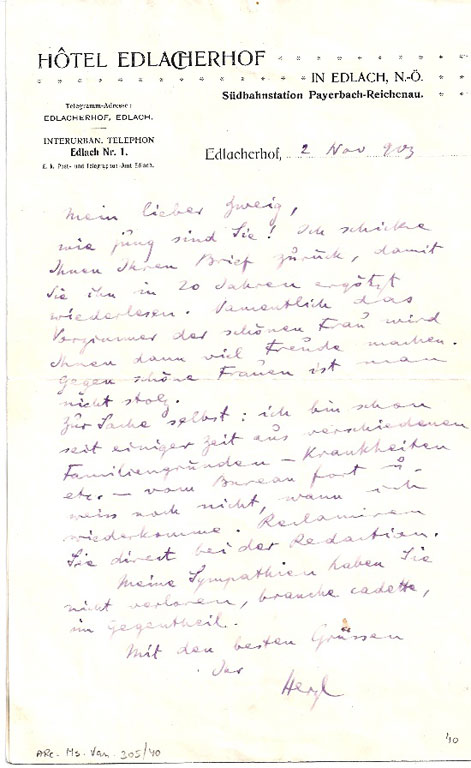 HÔTEL EDLACHERHOF
IN EDLACH, N.-Ö.
Südbahnstation Payerbach-Reichenau.
Telegramm-Adresse:
EDLACHERHOF, EDLACH.
INTERURBAN. TELEPHON
Edlach Nr. 1.
K. k. Post- und Telegraphen-Amt Edlach.
Edlacherhof, 2 Nov 903
Mein lieber Zweig,
wie jung sind Sie! Ich schicke
Ihnen Ihren Brief zurück, damit
Sie ihn in 20 Jahren ergötzt
wiederlesen. Namentlich das
der schönen Frau wird
Ihnen dann viel Freude machen.
Gegen schöne Frauen ist man
nicht stolz.
Zur Sache selbst: ich bin schon
seit einiger Zeit aus verschiedenen
Familiengründen – Krankheiten
etc. – vom Bureau fort u.
weiss noch nicht, wann ich
wiederkomme. Reclamiren
Sie direct bei der Redaction.
Meine Sympathien haben Sie
nicht verloren, branche cadette,
im Gegentheil.
Mit den besten Grüssen
Ihr
Herzl
ARC. Ms. Var. 305/40
1/10